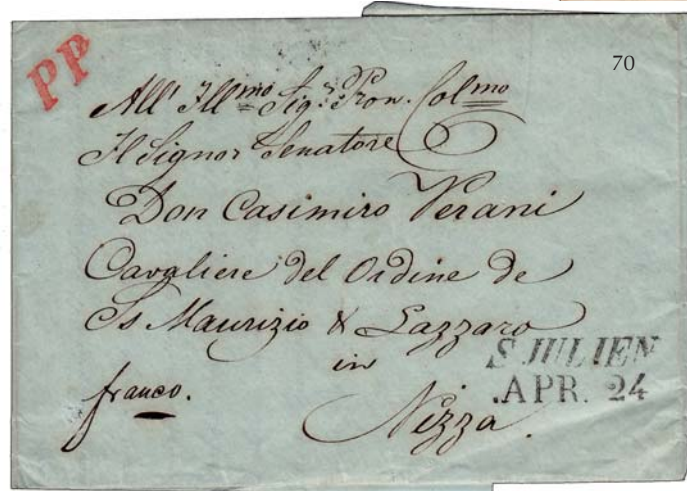 PP
70
All' Ill.mo Sig.r Pron. Col.mo
Il Signor Senatore
Don Casimiro Verani
Cavaliere del Ordine de
Ss Maurizio & Lazzaro
in
franco.
Nizza.
S. JULIEN
.APR. 24